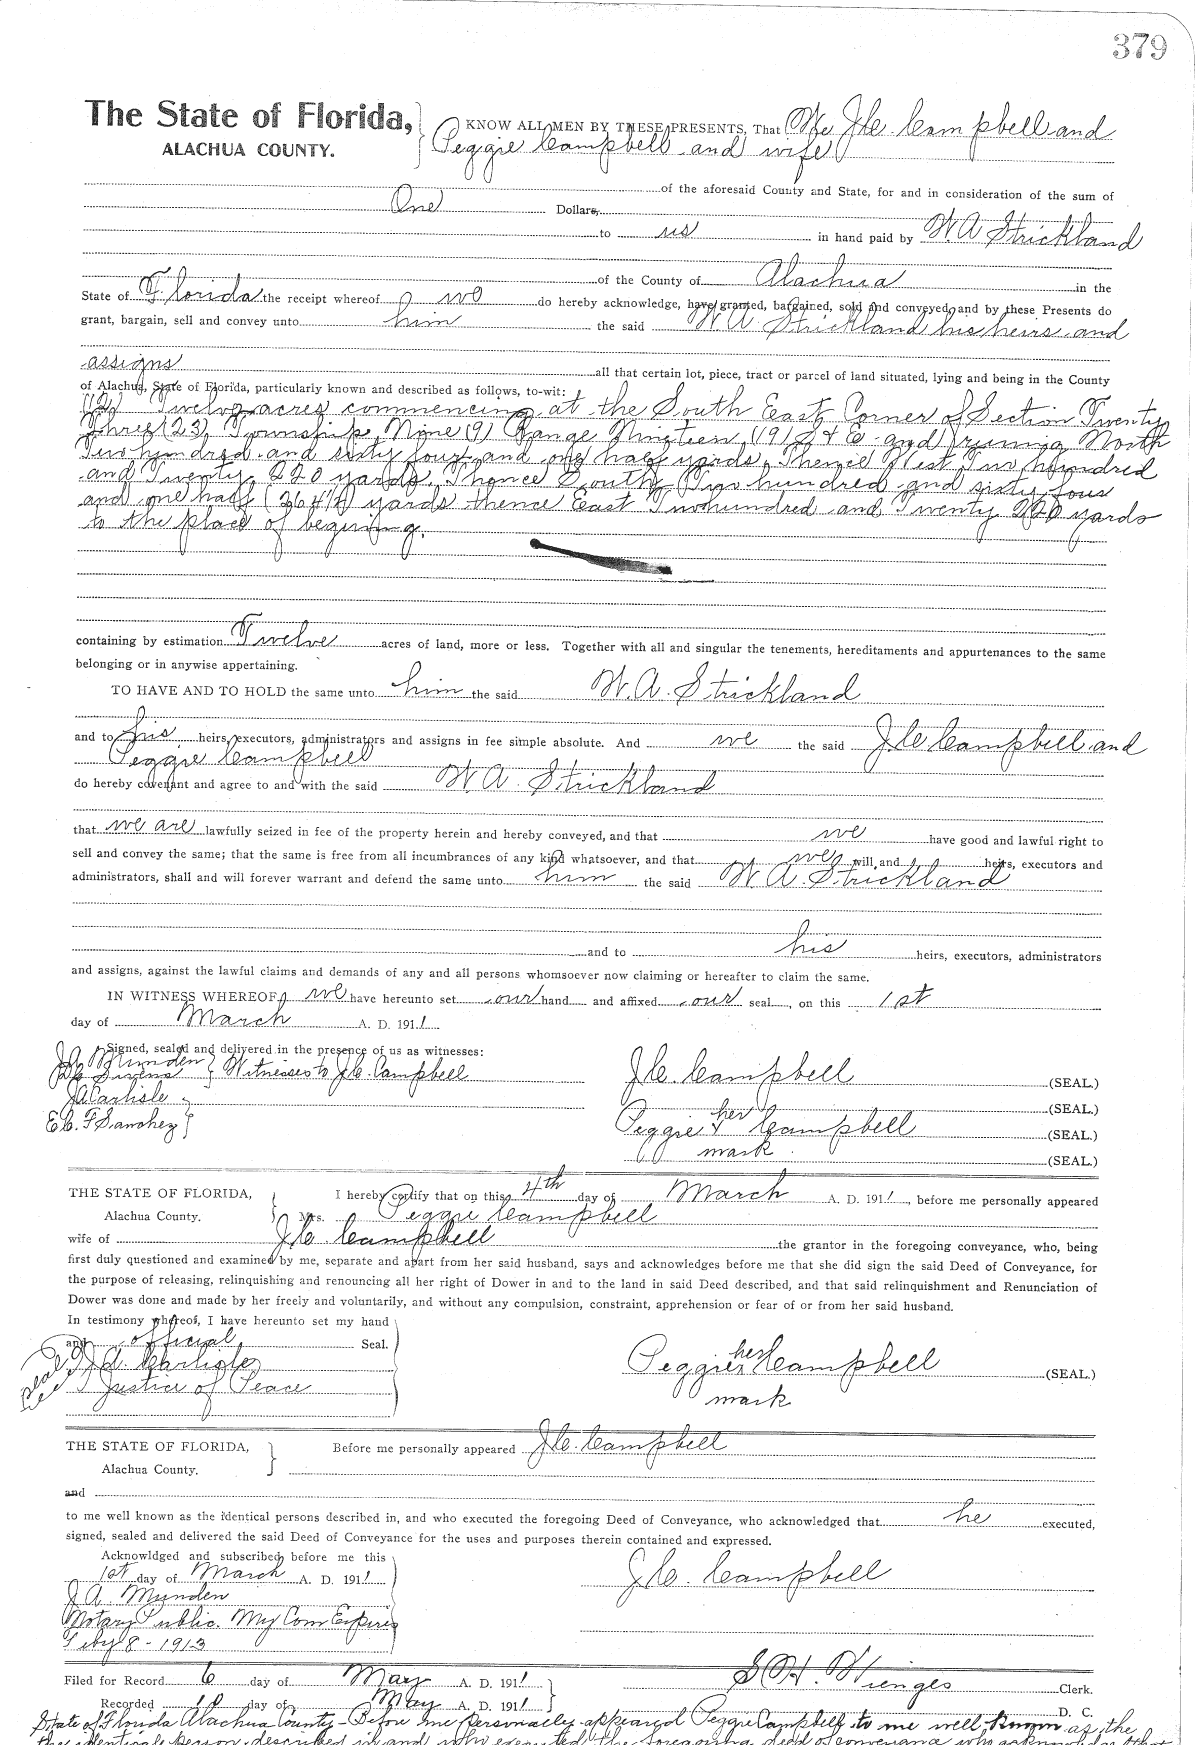 379
The State of Florida,
ALACHUA COUNTY.
KNOW ALL MEN BY THESE PRESENTS, That We J.C. Campbell and
Peggie Campbell and wife
of the aforesaid County and State, for and in consideration of the sum of
One Dollars,
to us in hand paid by W A Strickland
of the County of Alachua in the
State of Florida the receipt whereof we do hereby acknowledge, have granted, bargained, sold and conveyed, and by these Presents do
grant, bargain, sell and convey unto him the said W A Strickland his heirs and
assigns all that certain lot, piece, tract or parcel of land situated, lying and being in the County
of Alachua, State of Florida, particularly known and described as follows, to-wit:
(12) Twelve acres commencing at the South East Corner of Section Twenty
Three (23) Township Nine (9) Range Nineteen (19) S & E and running North
Two hundred and sixty four and one half yards, Thence West Two hundred
and Twenty 220 yards. Thence South Two hundred and sixty four
and one half (264½) yards thence East Two hundred and Twenty 220 yards
to the place of begining.
containing by estimation Twelve acres of land, more or less. Together with all and singular the tenements, hereditaments and appurtenances to the same
belonging or in anywise appertaining.
TO HAVE AND TO HOLD the same unto him the said W. A. Strickland
and to his heirs, executors, administrators and assigns in fee simple absolute. And we the said J C Campbell and
Peggie Campbell
do hereby covenant and agree to and with the said W A. Strickland
that we are lawfully seized in fee of the property herein and hereby conveyed, and that we have good and lawful right to
sell and convey the same; that the same is free from all incumbrances of any kind whatsoever, and that we will and heirs, executors and
administrators, shall and will forever warrant and defend the same unto him the said W A. Strickland
and to his heirs, executors, administrators
and assigns, against the lawful claims and demands of any and all persons whomsoever now claiming or hereafter to claim the same.
IN WITNESS WHEREOF, we have hereunto set our hand and affixed our seal, on this 1st
day of March A. D. 1911.
Signed, sealed and delivered in the presence of us as witnesses:
J A Munden
Witnesses to J.C. Campbell
J.C. Campbell (SEAL.)
J A Carlisle
(SEAL.)
E. C. F Sanchez
Peggie her x Campbell (SEAL.)
mark
(SEAL.)
THE STATE OF FLORIDA,
Alachua County.
I hereby certify that on this 4th day of March A. D. 1911, before me personally appeared
Mrs. Peggie Campbell
wife of J.C. Campbell the grantor in the foregoing conveyance, who, being
first duly questioned and examined by me, separate and apart from her said husband, says and acknowledges before me that she did sign the said Deed of Conveyance, for
the purpose of releasing, relinquishing and renouncing all her right of Dower in and to the land in said Deed described, and that said relinquishment and Renunciation of
Dower was done and made by her freely and voluntarily, and without any compulsion, constraint, apprehension or fear of or from her said husband.
In testimony whereof, I have hereunto set my hand
and official Seal.
J A. Carlisle
Justice of Peace
Peggie her x Campbell (SEAL.)
mark
THE STATE OF FLORIDA,
Alachua County.
Before me personally appeared J.C. Campbell
and
to me well known as the identical persons described in, and who executed the foregoing Deed of Conveyance, who acknowledged that he executed,
signed, sealed and delivered the said Deed of Conveyance for the uses and purposes therein contained and expressed.
Acknowldged and subscribed before me this
1st day of March A. D. 1911.
J.C. Campbell
J A. Munden
Notary Public. My Com Expires
Feby 8 - 1913
Filed for Record 6 day of May A. D. 1911
S H. Wienges Clerk.
Recorded 10 day of May A. D. 1911
D. C.
State of Florida Alachua County - Before me personally appeared Peggie Campbell to me well known as the
the identicale person described in and who executed the foregoing deed of conveyance who acknowledged that